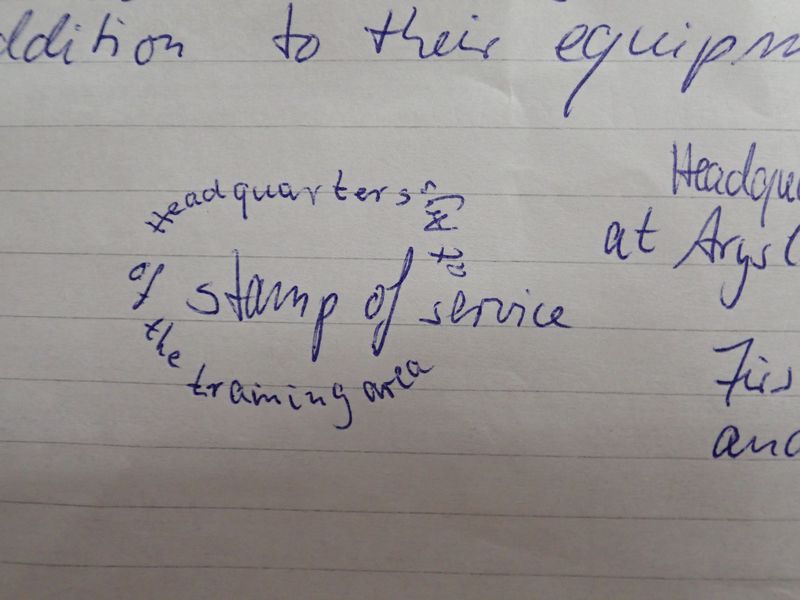 ddition to their equipm
Headquarters
of
the
training area
stamp of service
Headqua
at Argsl
Firs
and